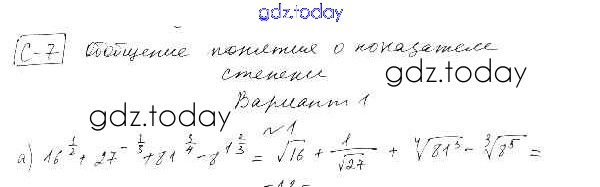 gdz.today
С-7 Обобщение понятия о показателе
степени
gdz.today
gdz.today
Вариант 1
№1
а) 16^{\frac{1}{2}} + 27^{-\frac{1}{3}} + 81^{\frac{3}{4}} - 8^{1\frac{2}{3}} = \sqrt{16} + \frac{1}{\sqrt{27}} + \sqrt[4]{81^3} - \sqrt[3]{8^5} =